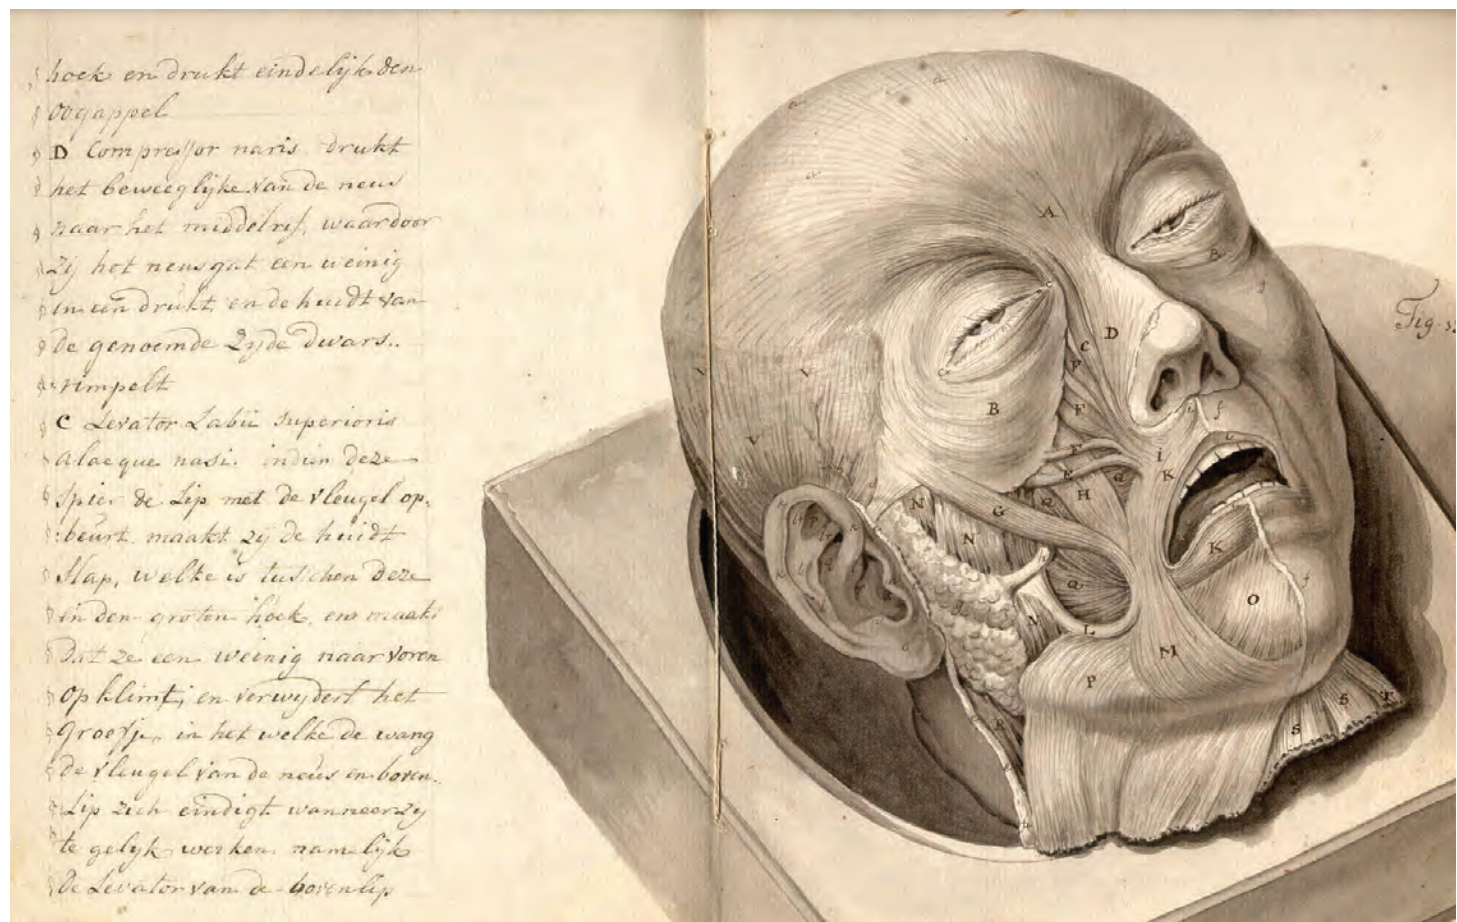 hoek en drukt eindelijk den
oogappel
D Compressor naris drukt
het beweeglijke van de neus
naar het middelrif, waardoor
zij het neusgat een weinig
in een drukt, en de huidt van
de genoemde Zyde dwars..
rimpelt
C Levator Labii Superioris
alaeque nasi. indien deze
Spier de Lip met de vleugel op.
beurt maakt zij de huidt
Slap, welke is tusschen deze
en den groten hoek, en maakt
Dat ze een weinig naar voren
op klimt; en verwydert het
Groefje, in het welke de wang
de vleugel van de neus en boven.
Lip zich eindigt wanneer zy
te gelyk werken namelijk
De Levator van de bovenlip
Fig.
a
a
a
A
B
g
V
V
V
C
D
B
F
F
F
E
G
H
Q
a
i
K
f
K
N
N
Q
L
M
M
O
f
P
R
S
S
T